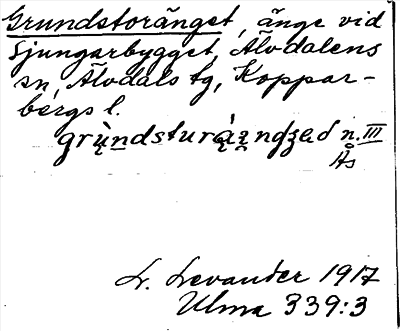 Grundstoränget, änge vid
Ljungarbygget, Älvdalens
sn, Älvdals tg, Koppar-
bergs l.
n. III
Ås
L. Levander 1917
Ulma 339:3